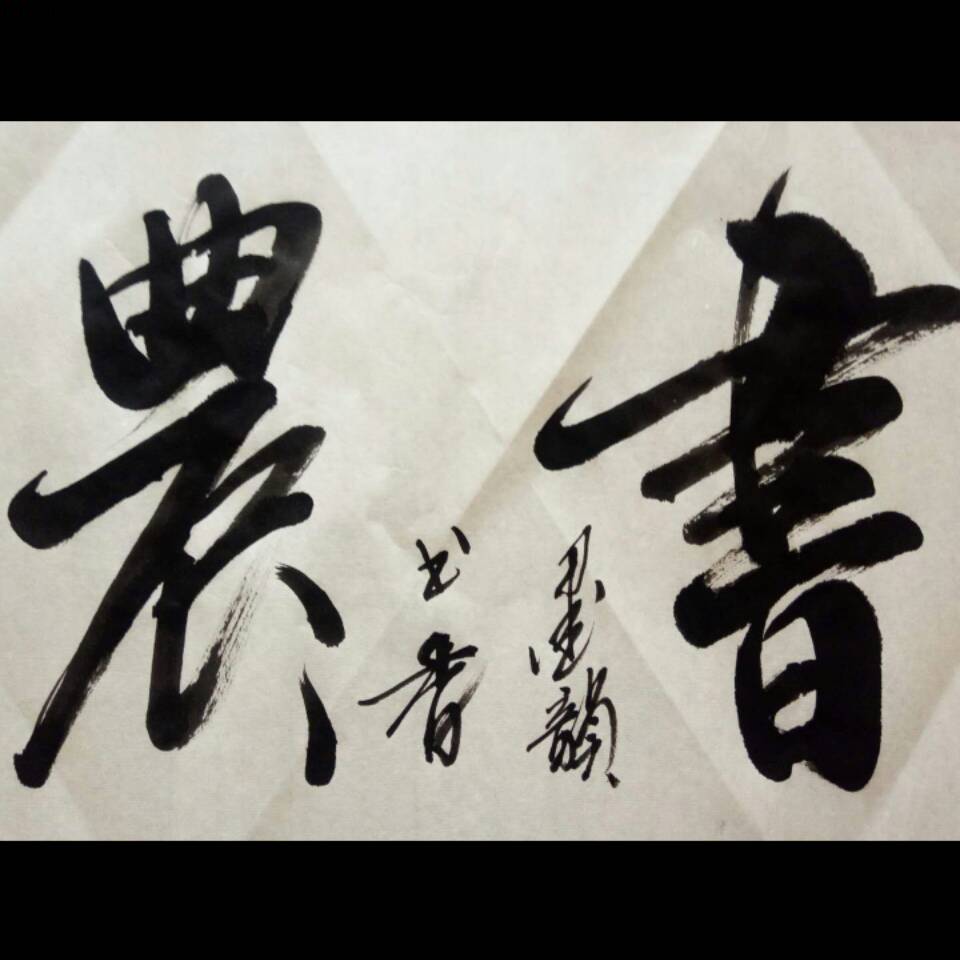 書
墨韻
书香
農